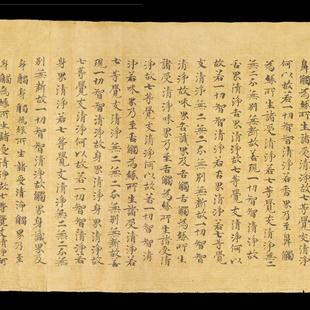 鼻觸為緣所生諸受清淨故七等覺支清淨
何以故若一切智智清淨若鼻界乃至鼻觸
為緣所生諸受清淨若七等覺支清淨無二
無二分無別無斷故善現一切智智清淨故
舌界清淨舌界清淨故七等覺支清淨何以
故若一切智智清淨若舌界清淨若七等覺
支清淨無二無二分無別無斷故一切智智
清淨故味界舌識界及舌觸舌觸為緣所生
諸受清淨味界乃至舌觸為緣所生諸受清
淨故七等覺支清淨何以故若一切智智清
淨若味界乃至舌觸為緣所生諸受清淨若
七等覺支清淨無二無二分無別無斷故善
現一切智智清淨故身界清淨身界清淨故
七等覺支清淨何以故若一切智智清淨若
身界清淨若七等覺支清淨無二無二分無
別無斷故一切智智清淨故觸界身識界及
身觸身觸為緣所生諸受清淨觸界乃至
身觸為緣所生諸受清淨故七等覺支清淨何